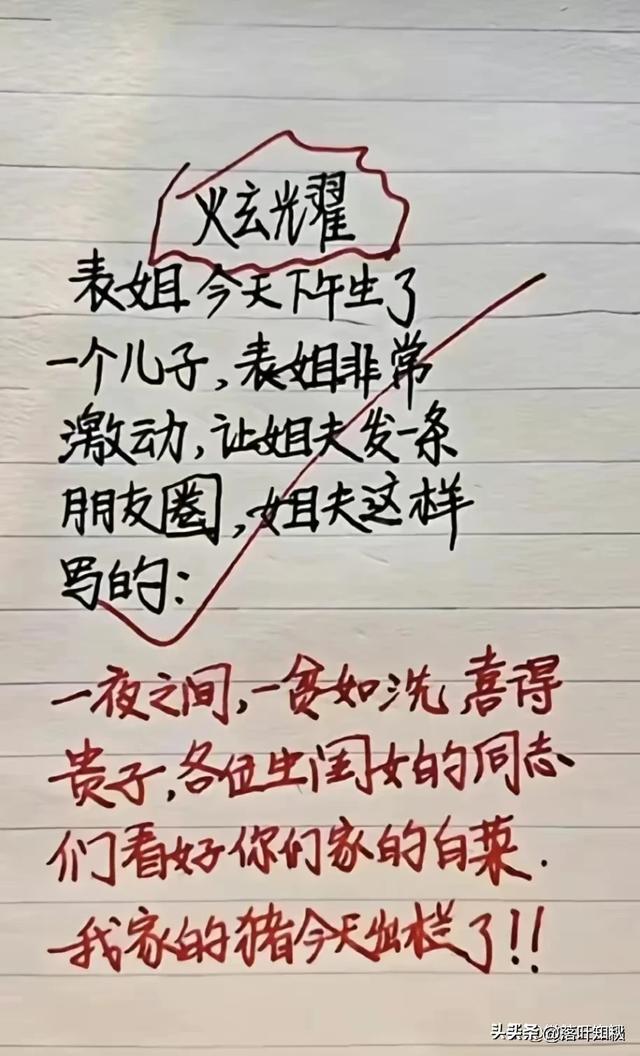 炫耀
表姐今天下午生了
一个儿子,表姐非常
激动,让姐夫发一条
朋友圈,姐夫这样
写的:
一夜之间,一贫如洗,喜得
贵子,各位生闺女的同志
们看好你们家的白菜.
我家的猪今天出栏了!!
头条 @落叶知秋